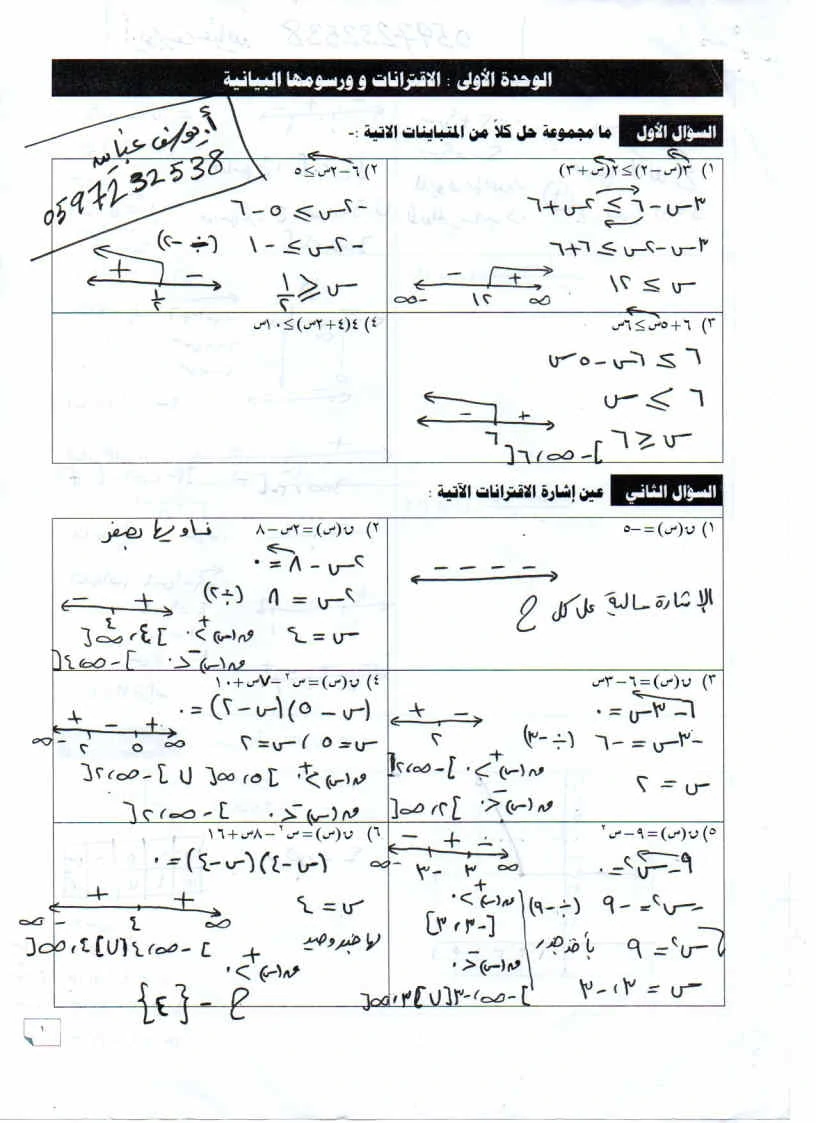 الوحدة الأولى : الاقترانات و ورسومها البيانية
السؤال الأول ما مجموعة حل كلاً من المتباينات الاتية :-
أ. يوسف عبايه
0597232538
١) ٣(س-٢)≤٢(س+٣)
٣س-٦ ≤ ٢س+٦
٣س-٢س ≤ ٦+٦
س ≤ ١٢
- +
-∞ ١٢ ∞
٢) ٦-٢س≤٥
-٢س ≤ ٥-٦
-٢س ≤ -١ (÷-٢)
س ≥ ١/٢
+ -
١/٢
٣) ٦+٥س≤٦س
٦ ≤ ٦س-٥س
٦ ≤ س
س ≥ ٦
- +
٦
]-∞،٦[
٤) ٤(٤+٢س)≤١٠س
السؤال الثاني عين إشارة الاقترانات الآتية :
١) ن(س)=-٥
- - - -
الإشارة سالبة على كل ح
٢) ن(س)=٢س-٨ نساويها بصفر
٢س-٨=٠
٢س = ٨ (÷٢)
س = ٤
- +
٤
+ ق(س)>٠ ]٤،∞[
- ق(س)<٠ ]-∞،٤[
٣) ن(س)=٦-٣س
٦-٣س=٠
-٣س=-٦ (÷-٣)
س = ٢
+ -
٢
+ ق(س)>٠ ]-∞،٢[
- ق(س)<٠ ]٢،∞[
٤) ن(س)=س²-٧س+١٠
(س-٥)(س-٢)=٠
س=٥ ، س=٢
+ - +
-∞ ٢ ٥ ∞
+ ق(س)>٠ ]٥،∞[ U ]-∞،٢[
- ق(س)<٠ ]-∞،٢[
٥) ن(س)=٩-س²
٩-س²=٠
-س²=-٩ (÷-٩)
س²=٩ بأخذ جذر
س = ٣،-٣
- + -
-∞ -٣ ٣ ∞
+ ق(س)>٠
[-٣،٣]
- ق(س)<٠
]-∞،-٣[U]٣،∞[
٦) ن(س)=س²-٨س+١٦
(س-٤)(س-٤)=٠
س = ٤
+ +
-∞ ٤ ∞
لها جذر وحيد
]-∞،٤[U]٤،∞[
+ ق(س)>٠
ح - {٤}
١